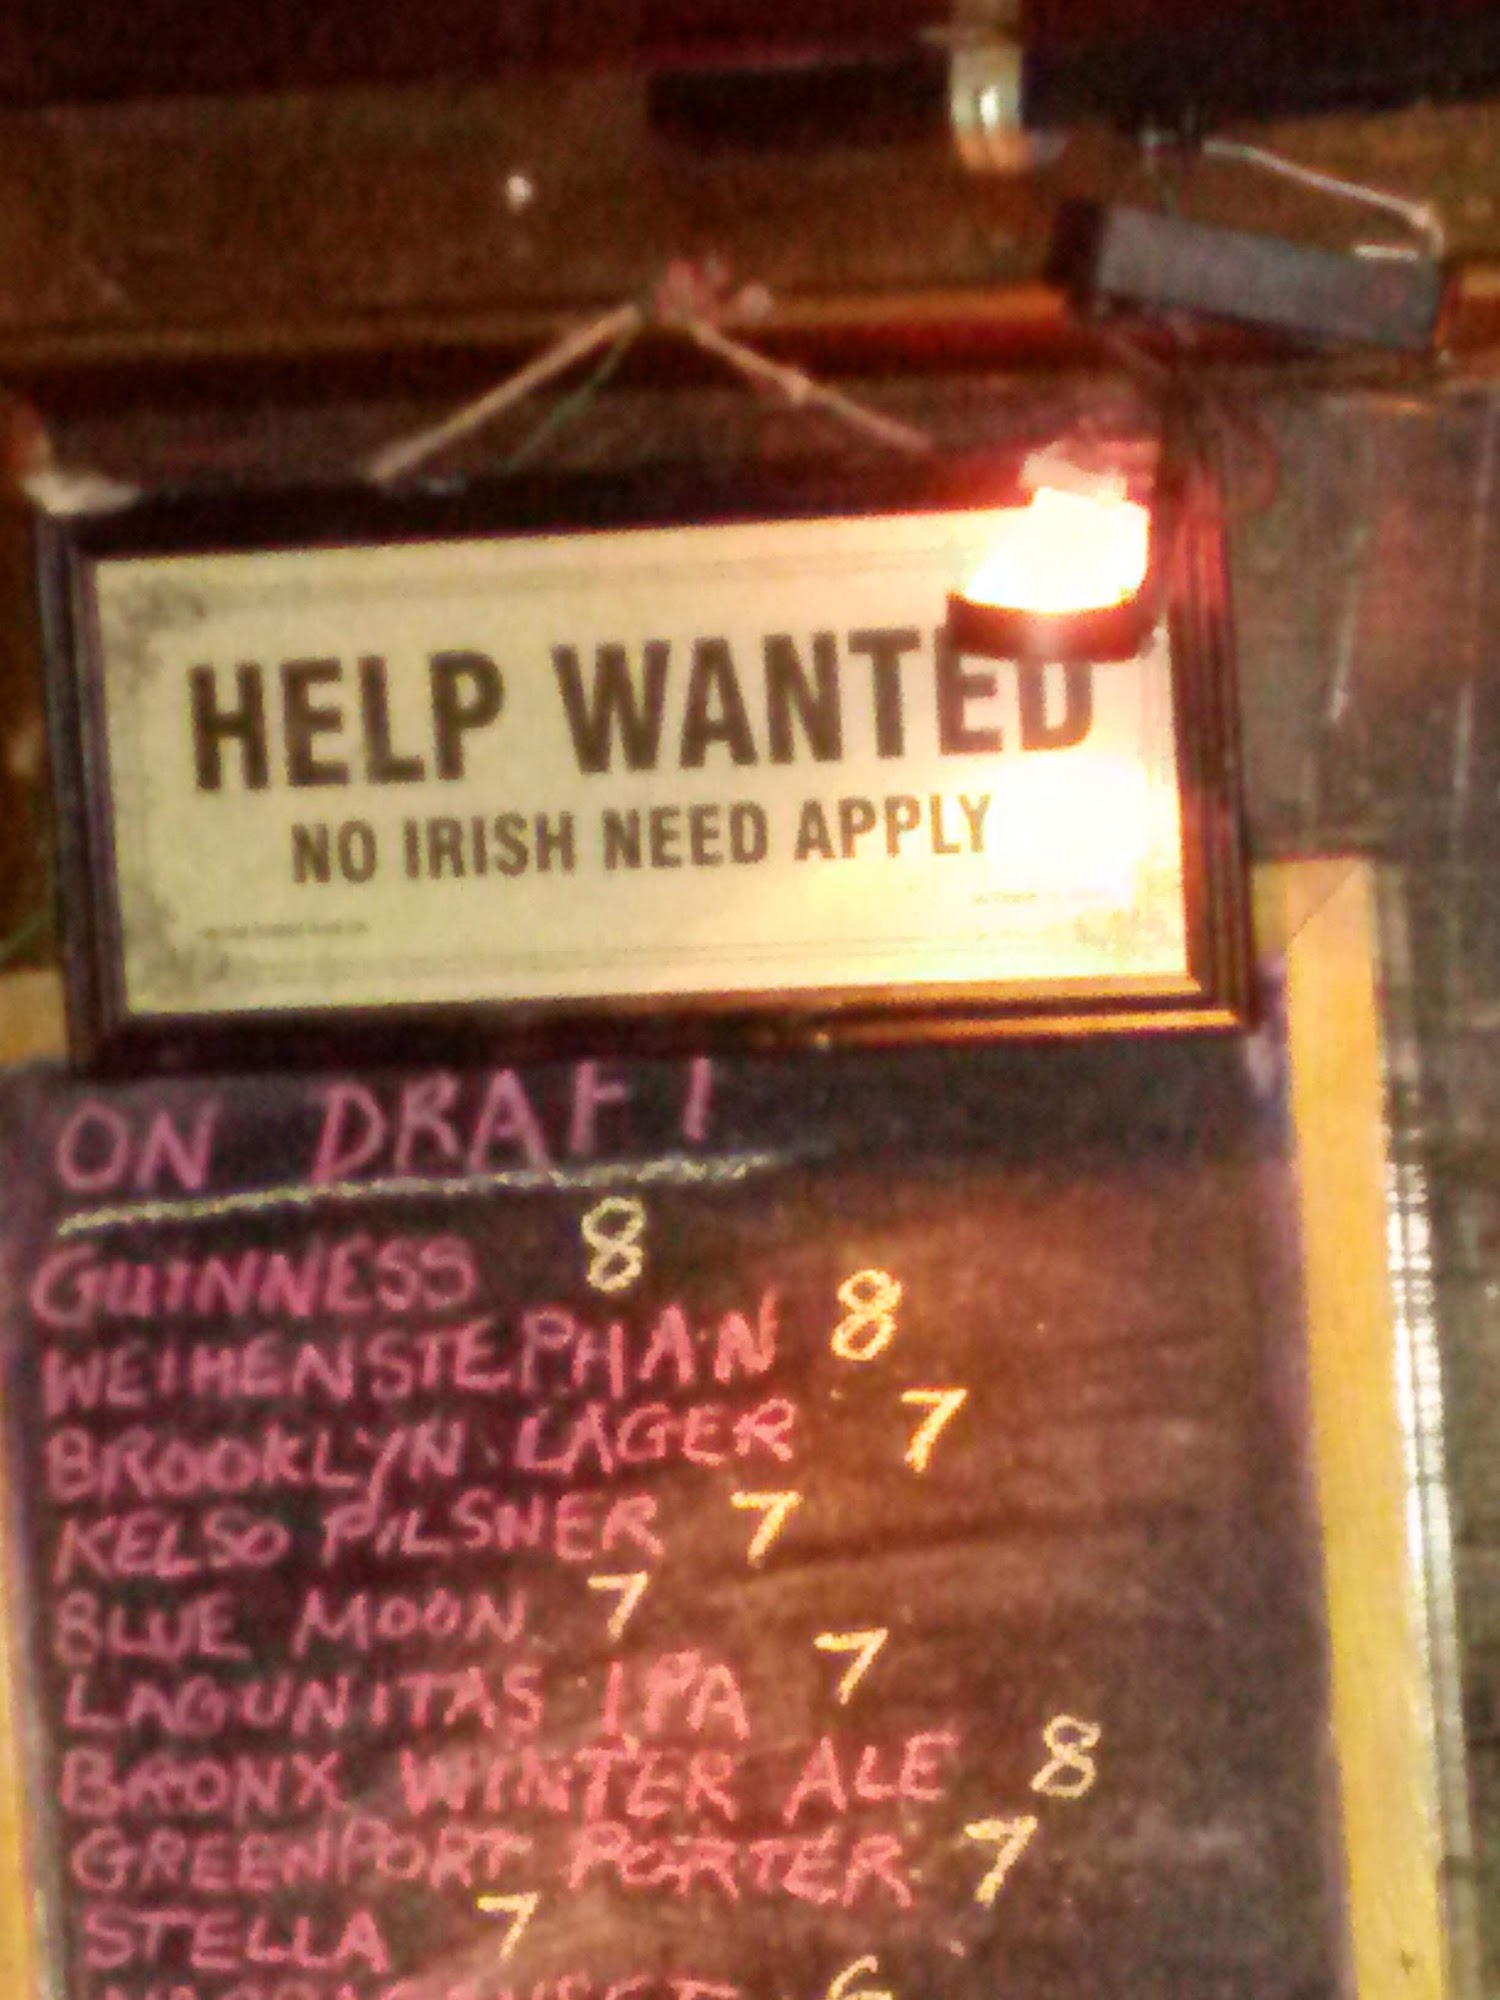 HELP WANTED
NO IRISH NEED APPLY
ON DRAFT
GUINNESS 8
WEIHENSTEPHAN 8
BROOKLYN LAGER 7
KELSO PILSNER 7
BLUE MOON 7
LAGUNITAS IPA 7
BRONX WINTER ALE 8
GREENPORT PORTER 7
STELLA 7
6